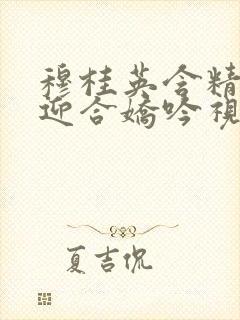 穆桂英含精
迎合嬌吟視
夏吉侃